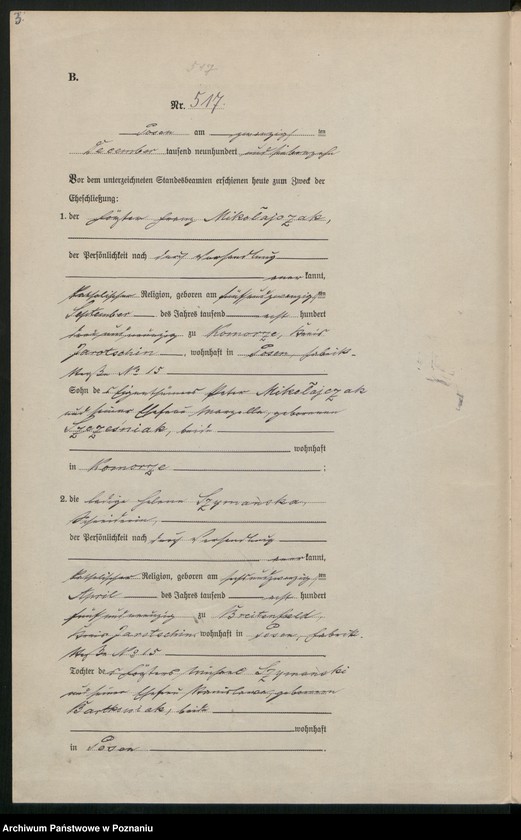 3.
517
B.
Nr. 517.
Posen am zwanzigsten
Dezember tausend neunhundert und siebenzehn
Vor dem unterzeichneten Standesbeamten erschienen heute zum Zweck der
Eheschließung:
1. der Franz Mikołajczak,
der Persönlichkeit nach durch Verhandlung
anerkannt,
katholischer Religion, geboren am fünfundzwanzigsten
September des Jahres tausend acht hundert
dreiundneunzig zu Komorze, Kreis
Jarotschin, wohnhaft in Posen, Fabrik-
straße No 15
Sohn des Eigenthümers Peter Mikołajczak
und seiner Ehefrau Marzella, geborenen
Szcześniak, beide
wohnhaft
in Komorze ;
2. die ledige Helena Szymańska,
Schneiderin,
der Persönlichkeit nach durch Verhandlung
anerkannt,
katholischer Religion, geboren am
April des Jahres tausend acht hundert
fünfundneunzig zu Breitenfeld,
Kreis Jarotschin, wohnhaft in Posen, Fabrik-
straße No 15
Tochter des Michael Szymański
und seiner Ehefrau Stanislawa, geborenen
Bartkowiak, beide
wohnhaft
in Posen .
Archiwum Państwowe w Poznaniu